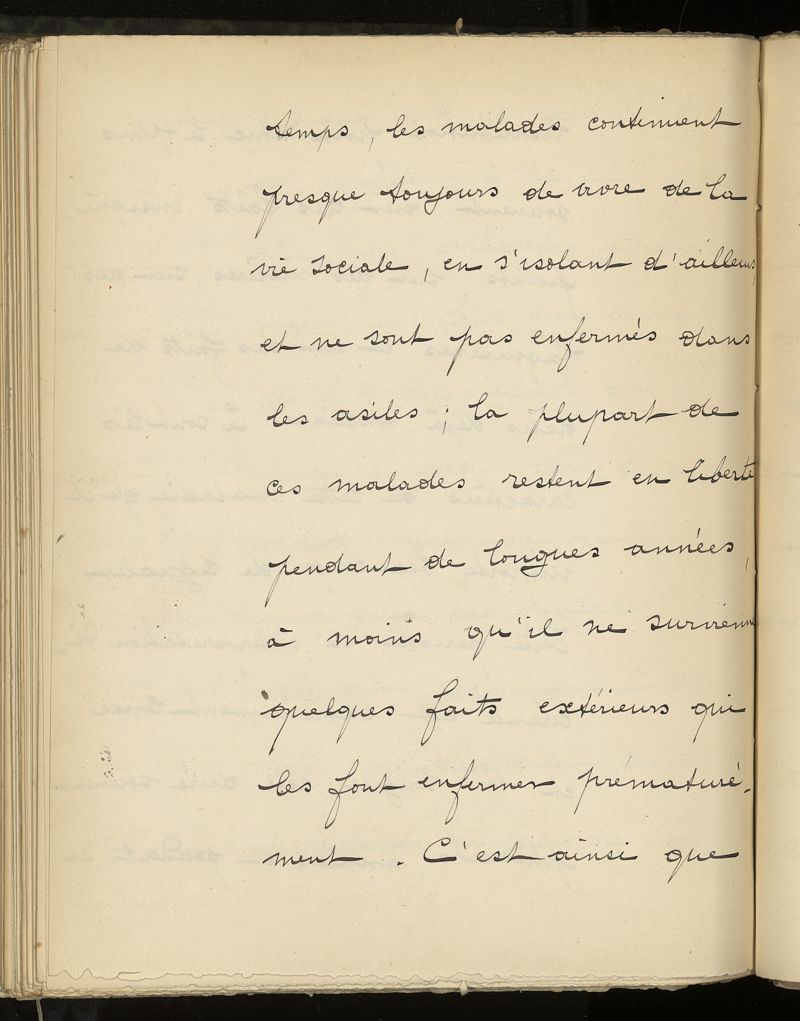 temps, les malades continuent
presque toujours de vivre de la
vie sociale, en s'isolant d'ailleurs,
et ne sont pas enfermés dans
les asiles ; la plupart de
ces malades restent en liberté
pendant de longues années,
à moins qu'il ne survienne
quelques faits extérieurs qui
les font enfermer prématuré-
ment. C'est ainsi que